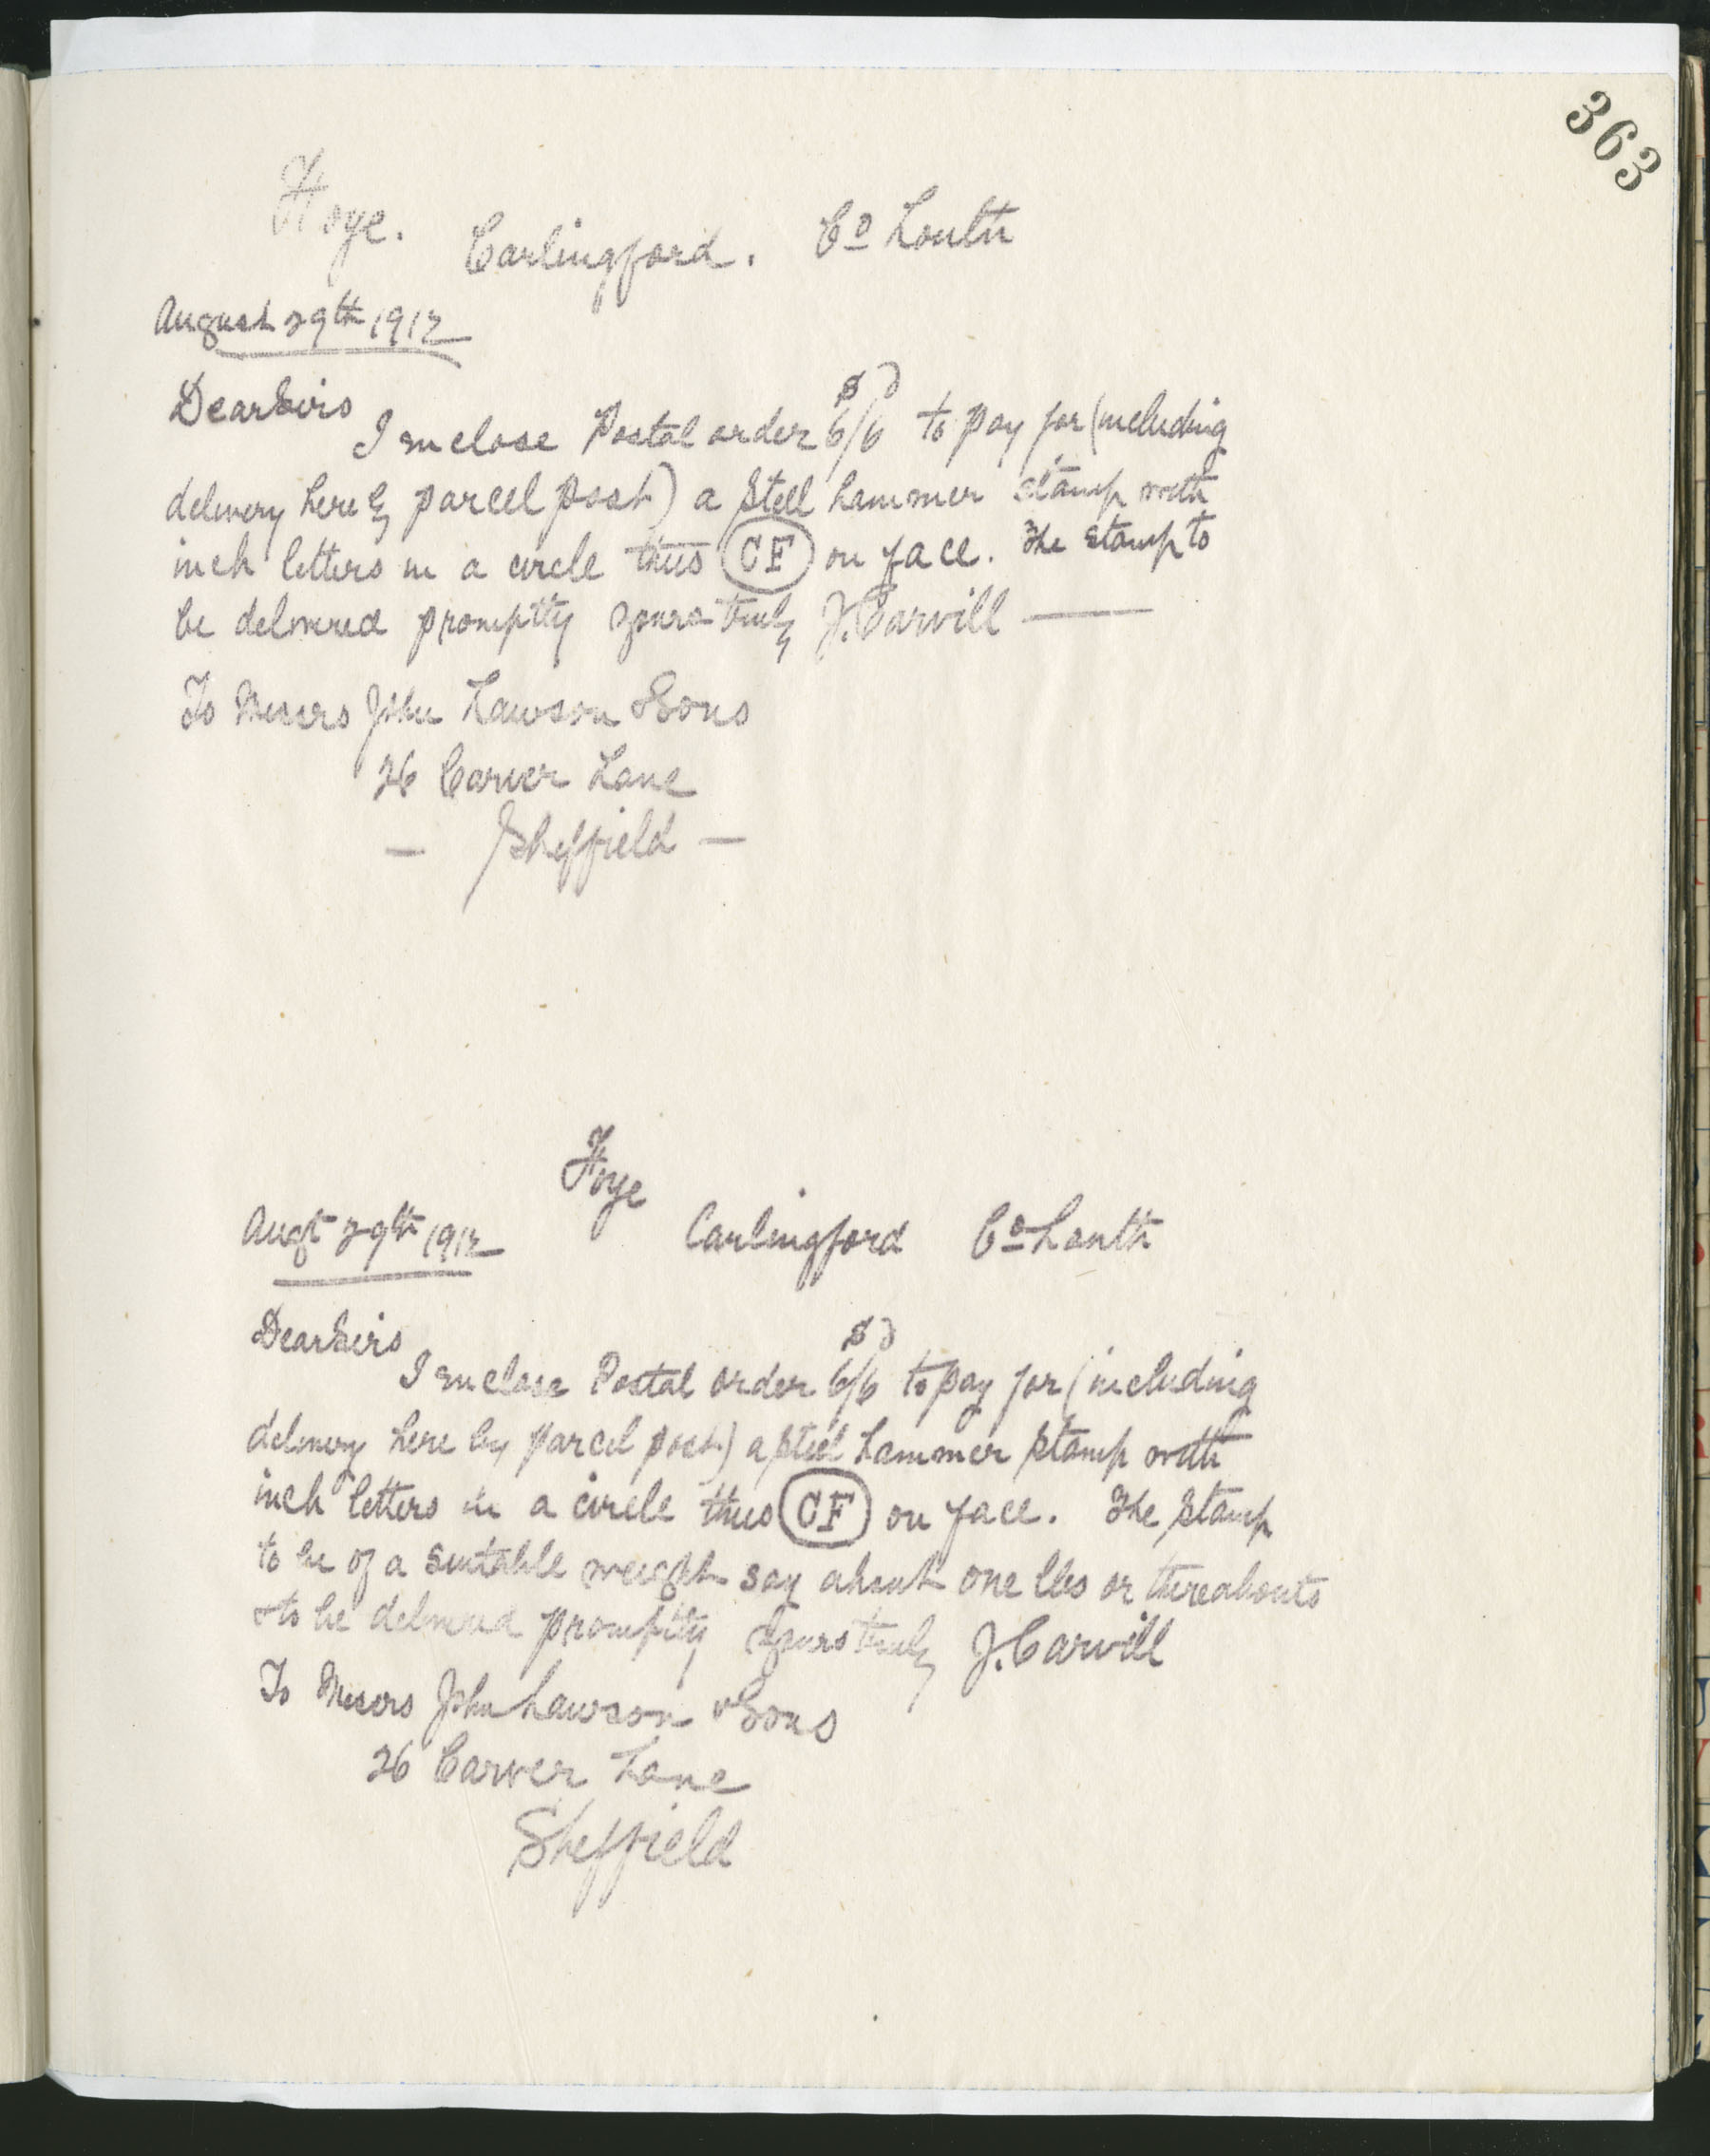 363
Foye.
Carlingford. Co Louth
August 29th 1912
Dear Sirs
I enclose Postal order 6s/6d to pay for (including
delivery here by parcel post) a steel hammer stamp with
inch letters in a circle thus CF on face. The stamp to
be delivered promptly yours truly J. Carvill
To Messrs John Lawson & Sons
26 Carver Lane
— Sheffield —
Foye
Augt 29th 1912
Carlingford Co Louth
Dear Sirs
I enclose Postal order 6s/6d to pay for (including
delivery here by parcel post) a steel hammer stamp with
inch letters in a circle thus CF on face. The stamp
to be of a suitable weight say about one lbs or thereabouts
& to be delivered promptly yours truly J. Carvill
To Messrs John Lawson & Sons
26 Carver Lane
Sheffield